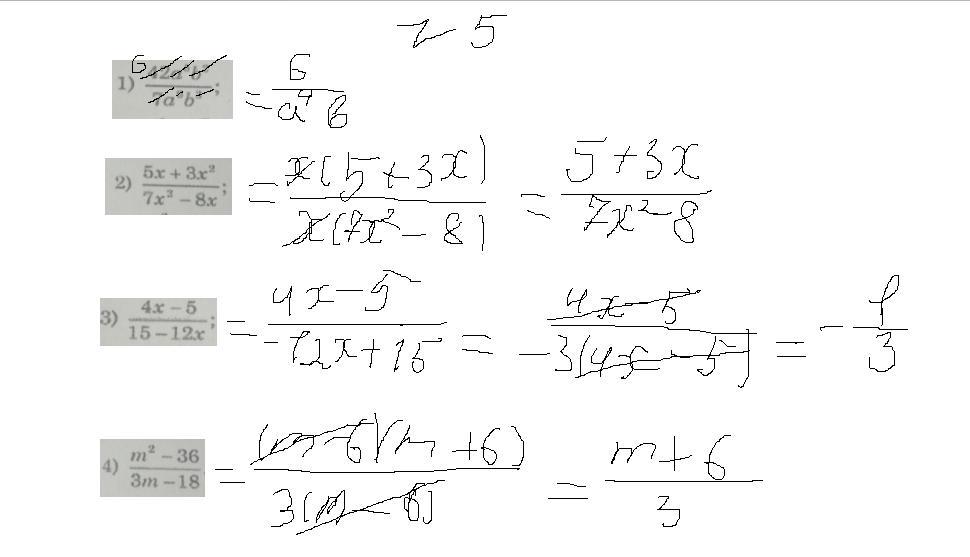 № 5
1) 6 42a b / 7a b ; = 6 / a⁴ b
2) 5x + 3x² / 7x³ − 8x ; = x(5+3x) / x(7x²−8) = 5+3x / 7x²−8
3) 4x − 5 / 15 − 12x ; = 4x−5 / −12x+15 = 4x−5 / −3(4x−5) = − 1 / 3
4) m² − 36 / 3m − 18 = (m−6)(m+6) / 3(m−6) = m+6 / 3